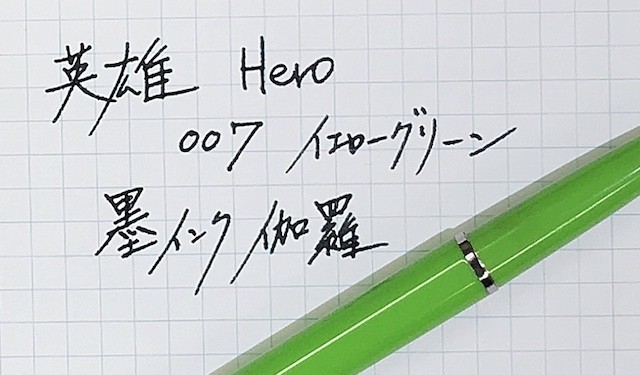 英雄 Hero
007 イエローグリーン
墨インク 伽羅